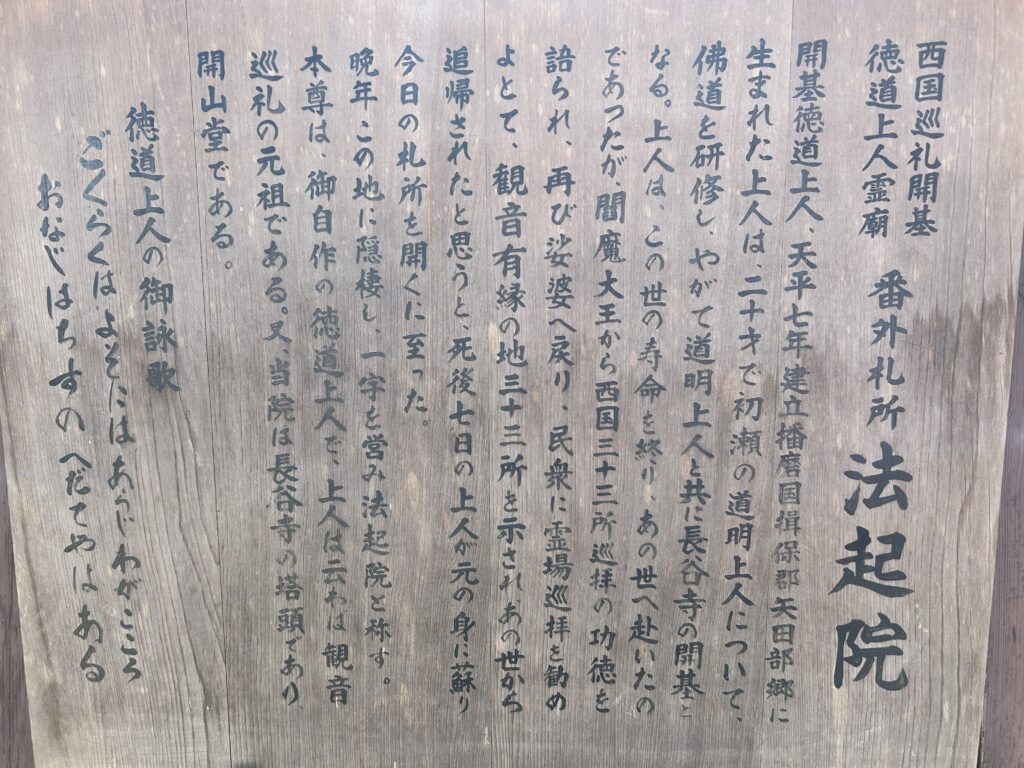 西国巡礼開基
徳道上人霊廟 番外札所 法起院
開基徳道上人、天平七年建立播磨国揖保郡矢田部郷に
生まれた上人は、二十才で初瀬の道明上人について、
佛道を研修し、やがて道明上人と共に長谷寺の開基と
なる。上人は、この世の寿命を終り、あの世へ赴いたの
であつたが、閻魔大王から西国三十三所巡拝の功徳を
語られ、再び娑婆へ戻り、民衆に霊場巡拝を勧め
よとて、観音有縁の地三十三所を示されあの世から
追帰されたと思うと、死後七日の上人が元の身に蘇り
今日の札所を開くに至った。
晩年、この地に隠棲し、一宇を営み法起院と称す。
本尊は、御自作の徳道上人で、上人は云わば観音
巡礼の元祖である。又、当院は長谷寺の塔頭であり、
開山堂である。
徳道上人の御詠歌
ごくらくは、よそにはあらじわがこころ
おなじはちすのへだてやはある